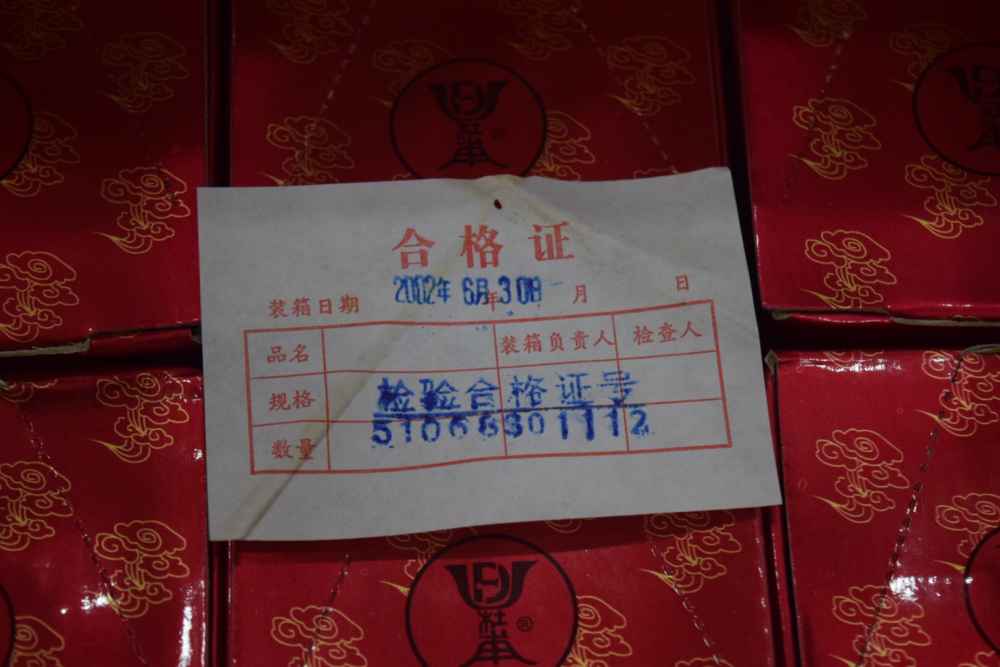 合格证
2002年6月30日
装箱日期 年 月 日
品名 装箱负责人 检查人
规格
检验合格证号
数量
51066301112